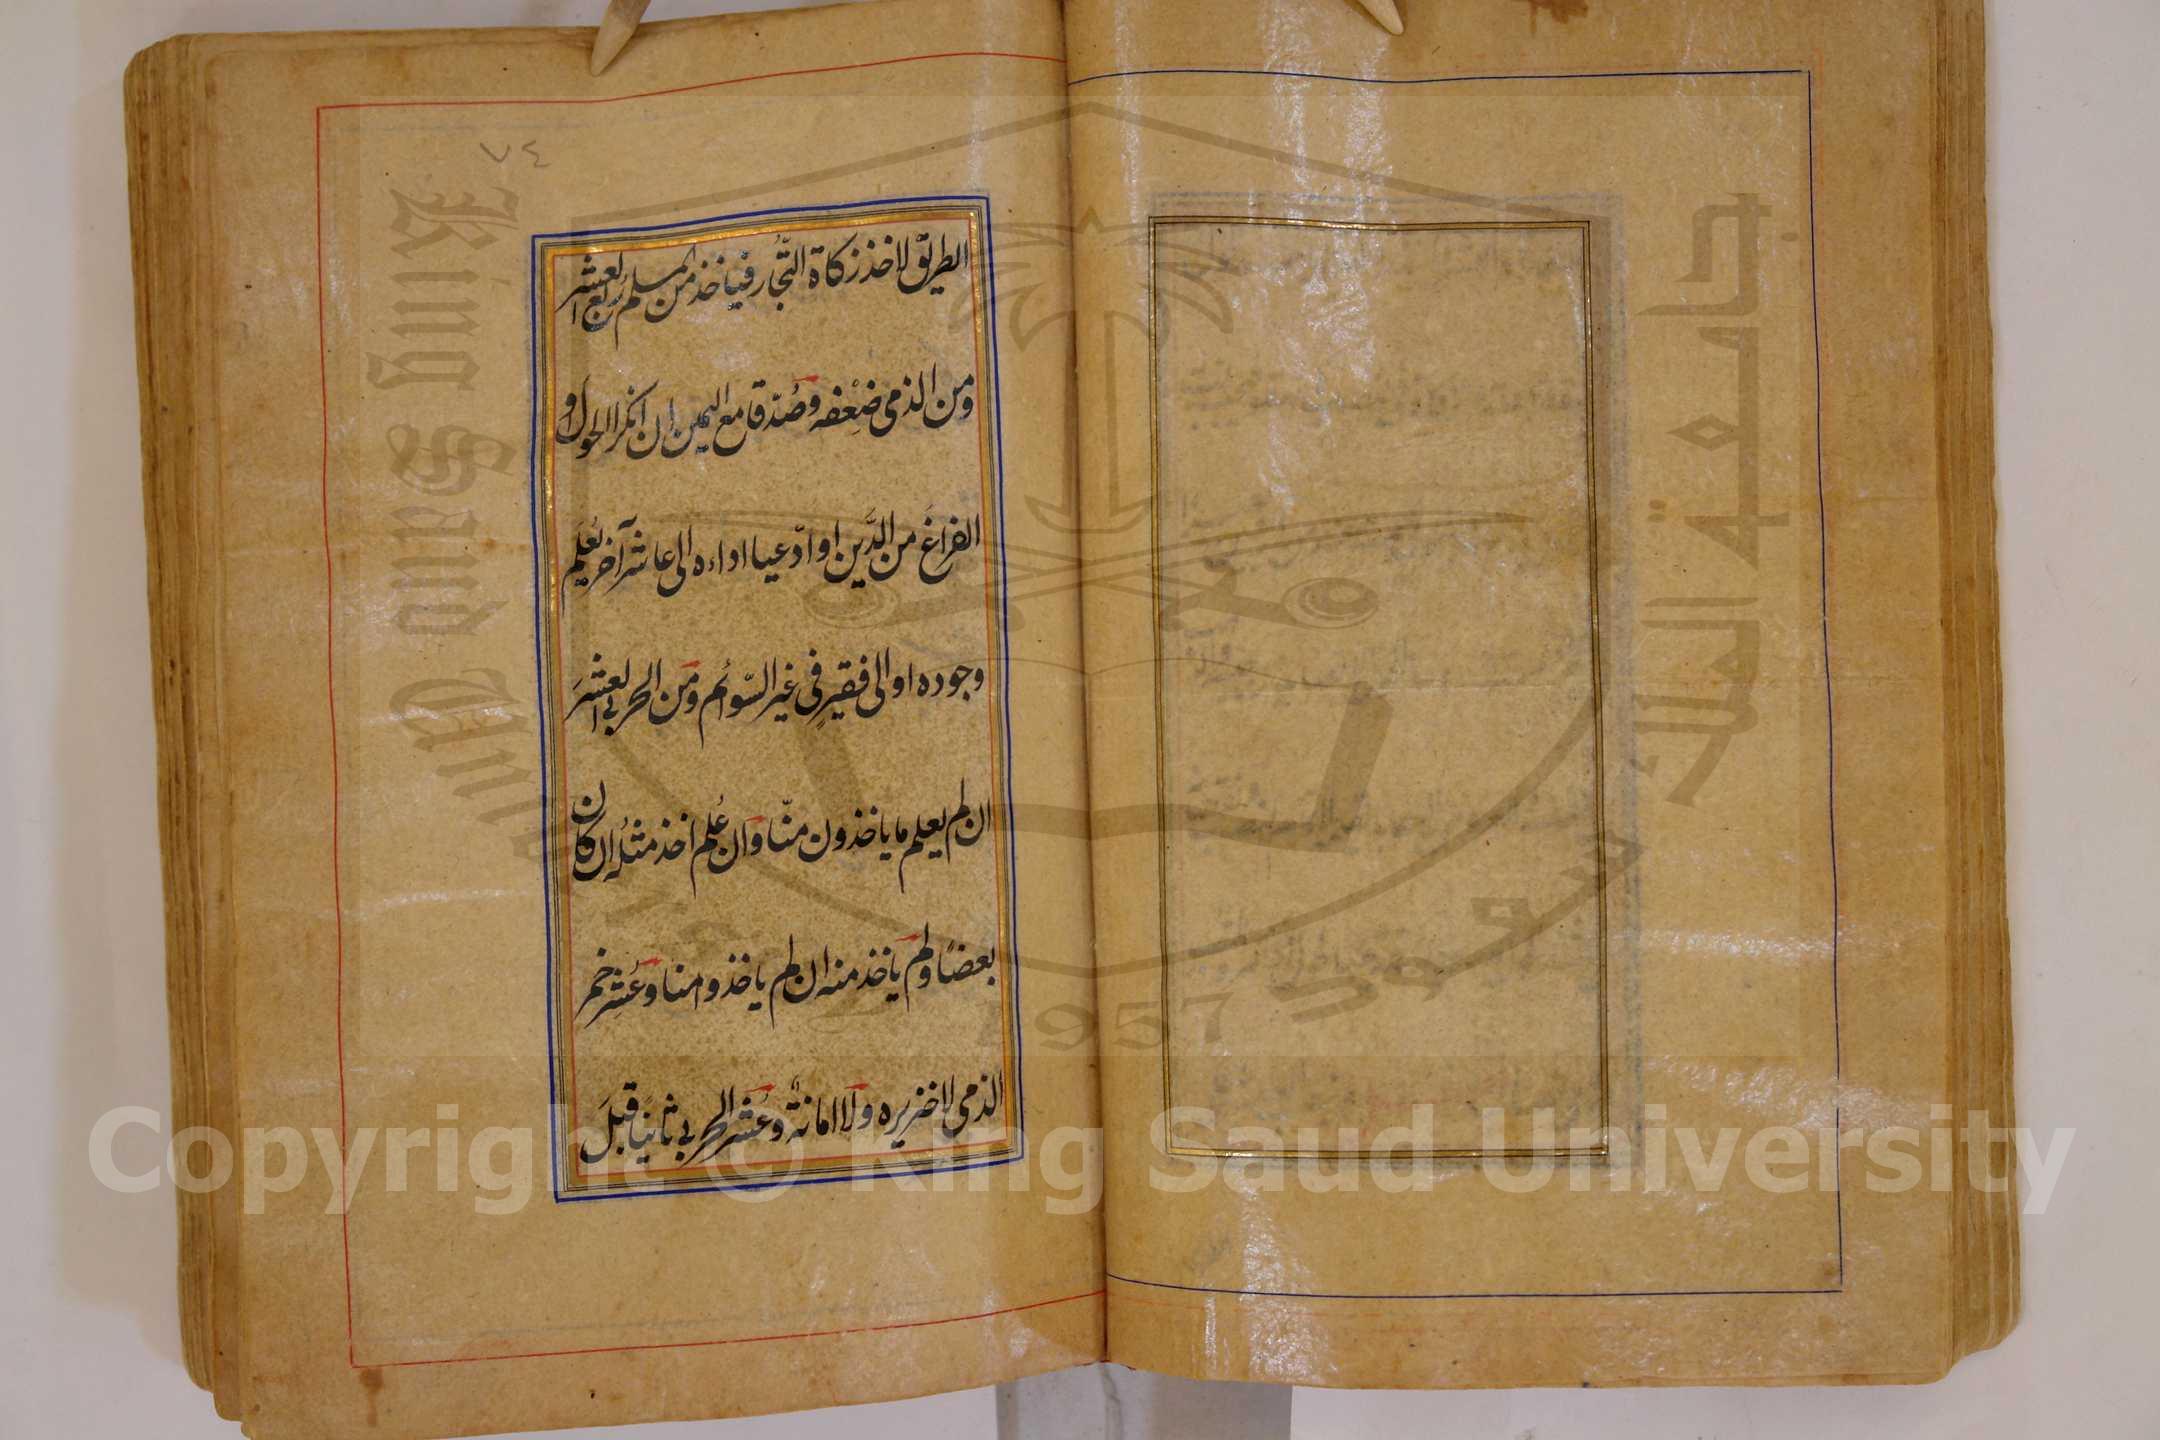 ٧٤
الطريق لاخذ زكاة التّجار فياخذ من المسلم ربع العشر
ومن الذمي ضِعْفه وصُدّقا مع اليمين ان انكرا الحول او
الفراغَ من الدَّين او ادّعيا اداءه الى عاشر آخر يُعلم
وجوده او الى فقيرٍ في غير السّوائم ومن الحربي العشرَ
ان لم يعلم ما ياخذون منّا وان عُلم اخذ مثله ان كان
بعضًا ولم ياخذ منه ان لم ياخذوا منا وعُشر خمر
الذمي لا خنزيره ولا امانتُه وعُشر الحربي ثانيًا قبلَ
King Saud University
جامعة الملك سعود
1957
Copyright © King Saud University